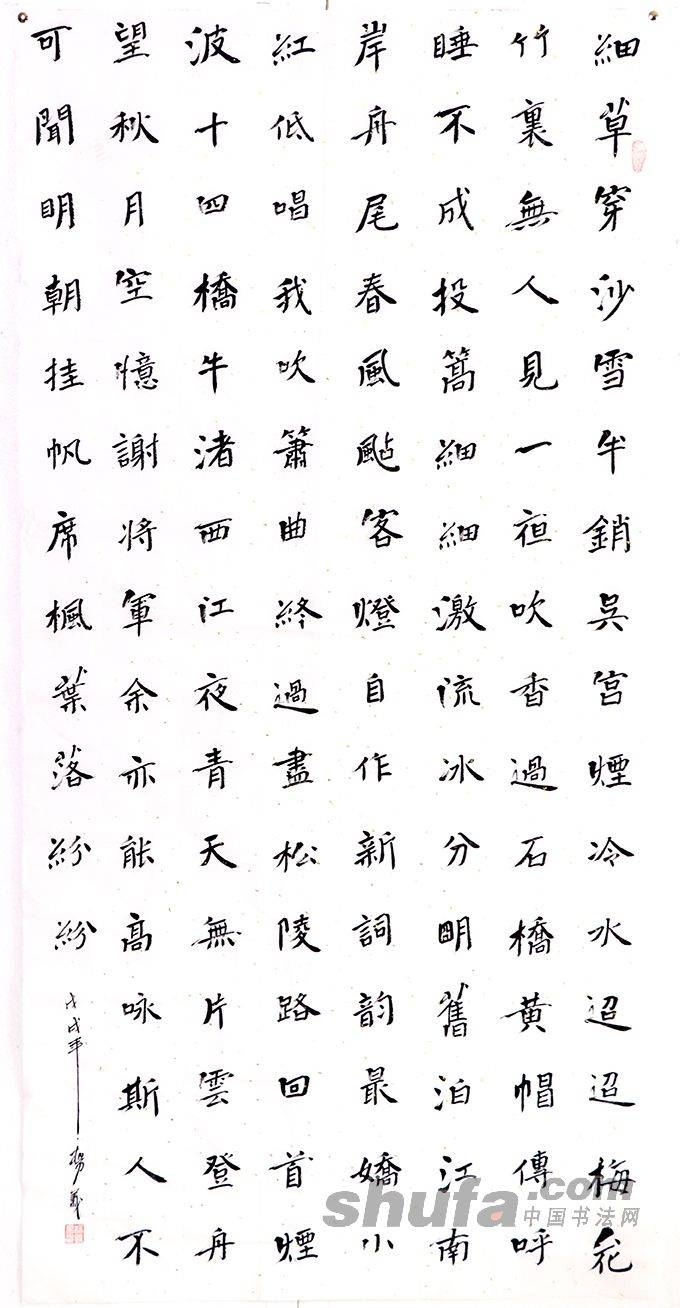 細草穿沙雪半銷吳宮煙冷水迢迢梅花
竹裏無人見一亱吹香過石橋黃帽傳呼
睡不成投篙細細激流冰分明舊泊江南
岸舟尾春風颭客燈自作新詞韵最嬌小
紅低唱我吹簫曲終過盡松陵路回首煙
波十四橋牛渚西江夜青天無片雲登舟
望秋月空憶謝將軍余亦能高咏斯人不
可聞明朝挂帆席楓葉落紛紛
戊戌年
shufa.com
中国书法网